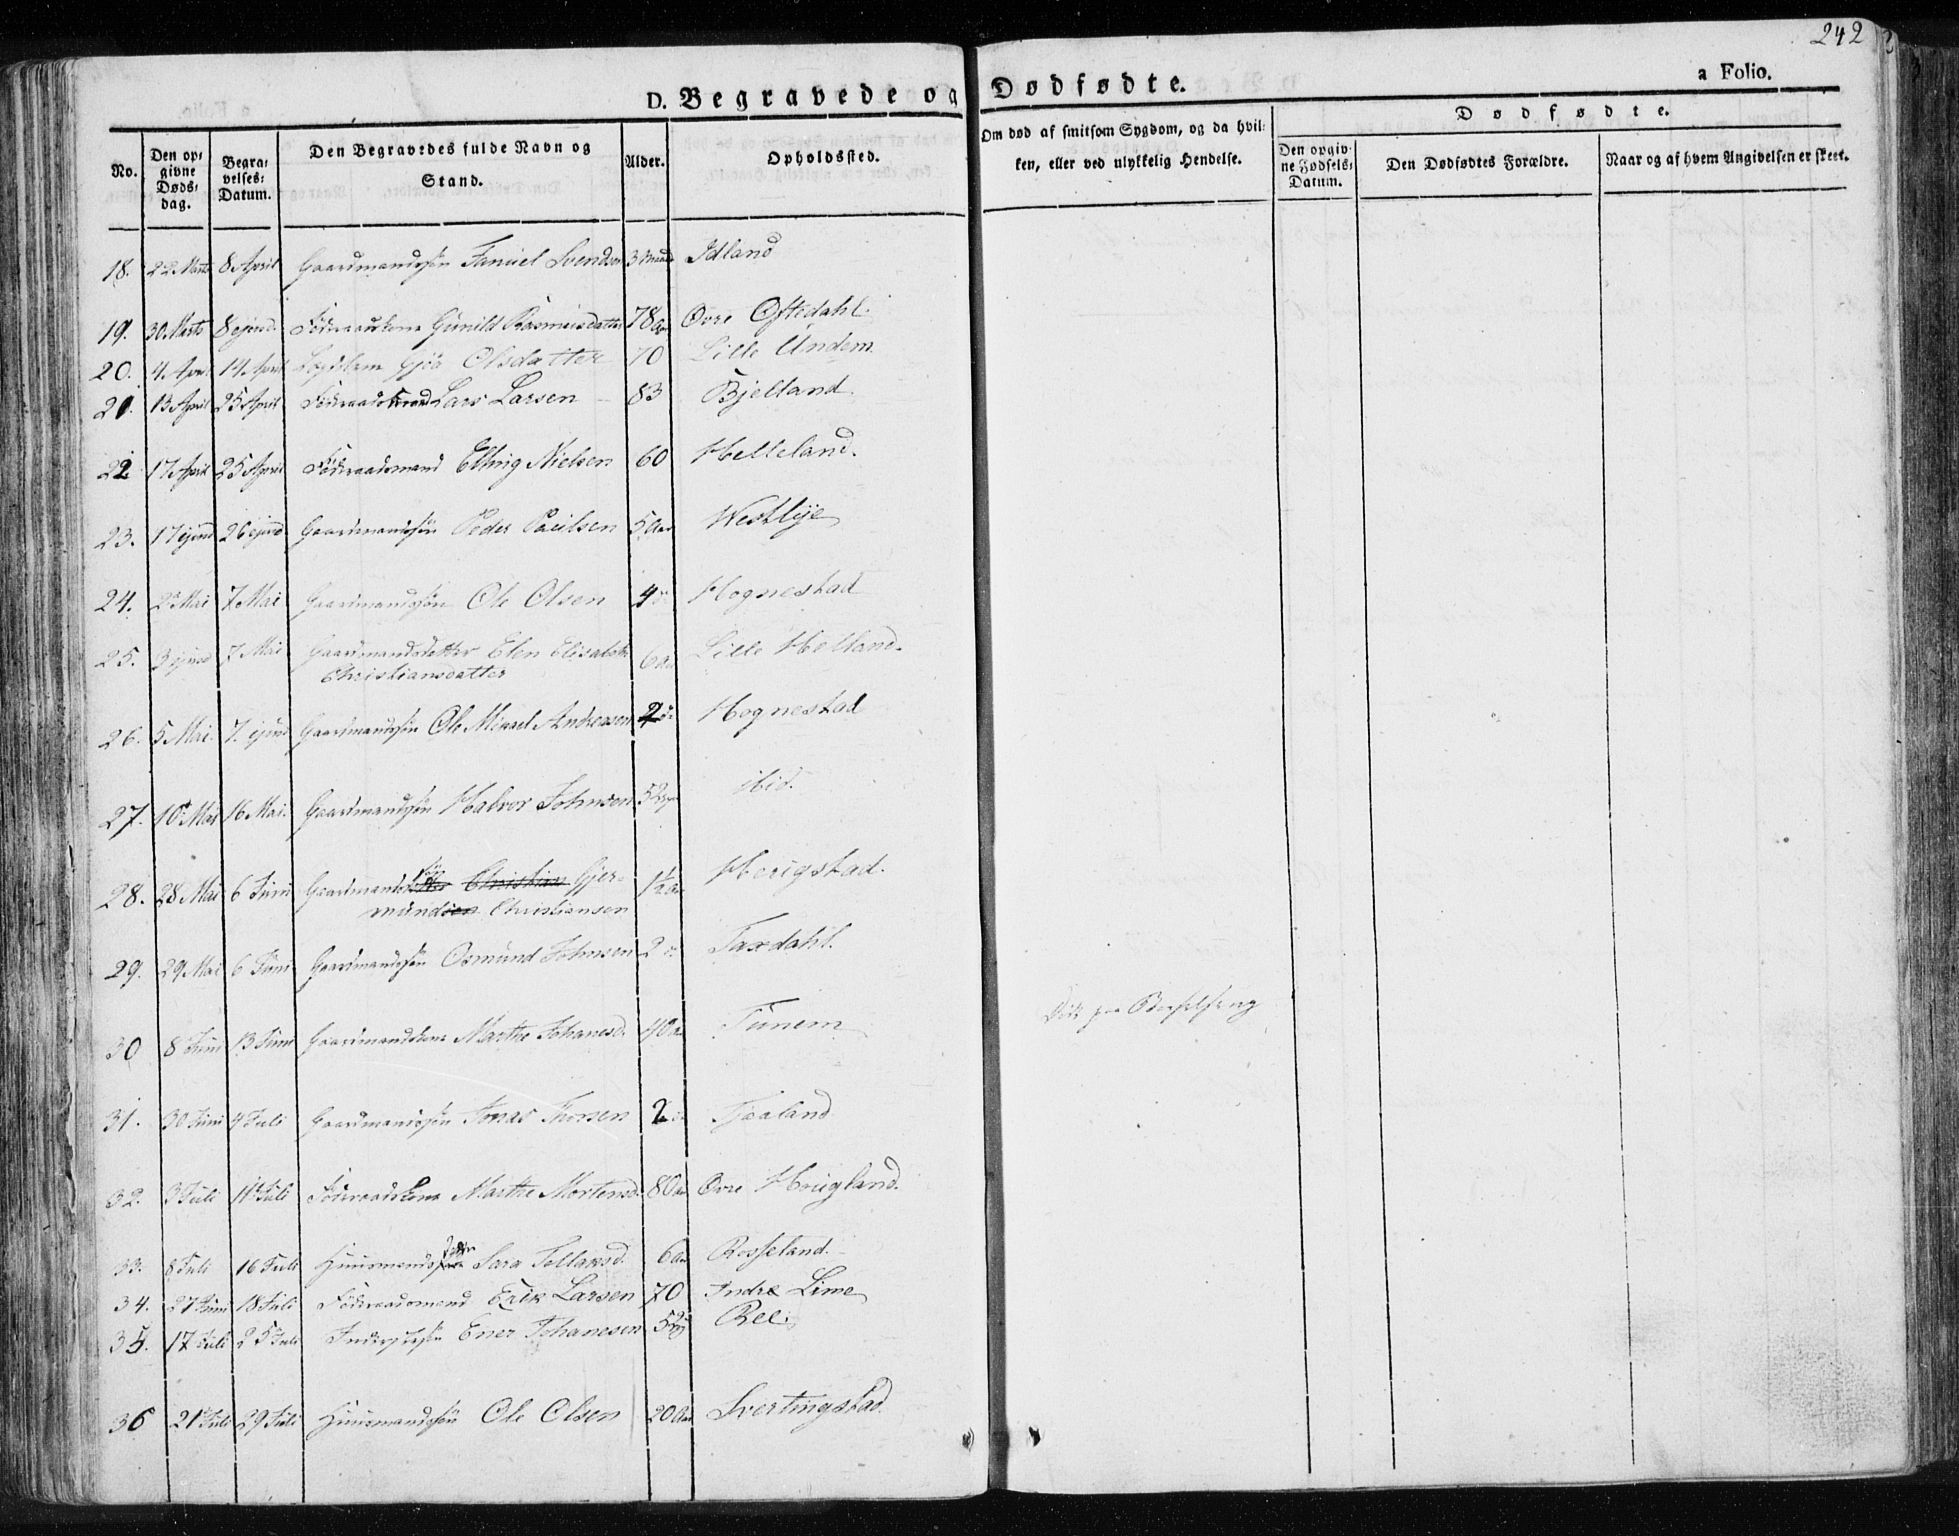 242
D. Begravede og Dødfødte.
a Folio.
No.
Den op-
givne
Døds-
dag.
Begra-
velses-
Datum.
Den Begravedes fulde Navn og
Stand.
Alder.
Opholdssted.
Om død af smitsom Sygdom, og da hvil-
ken, eller ved ulykkelig Hendelse.
Dødfødte.
Den opgiv-
ne Fødsels-
Datum.
Den Dødfødtes Forældre.
Naar og af hvem Angivelsen er skeet.
18. 22 Marts 8 April Gaardmandssön Svendsen Idland
19. 30 Marts 8 ejusd. Föderaadskone Gunild Rasmusdatter 78 Aar Övre Oftedahl.
20. 4 April 14 April Lægdslem Olsdatter 70 Lille Undem
21. 13 April 25 April Föderaadsmand Lars Larsen 83 Bjelland.
22 17 April 25 April Föderaadsmand Elling Nielsen 60 Helleland.
23. 17 ejusd 26 ejusd. Gaardmandssön Peder Paulsen 5 Aar Westlye
24. 2 Mai 7 Mai Gaardmandssön Ole Olsen 4 Hognestad
25. 3 ejusd 7 Mai Gaardmandsdatter Elen Elisabeth 6 Aar Lille Helland.
Christiansdatter
26. 5 Mai. 7. ejusd Gaardmandssön Ole Mikael Andreasen 2 Hognestad
27. 10 Mai 16 Mai. Gaardmandssön Halvor Johnsen ibid.
28. 28 Mai 6 Juni Gaardmands sön Christian Gjer-
mundsen Christiansen 1½ Aar Herigstad.
29. 29 Mai 6 Juni Gaardmandssön Osmund Johnsen 2 Taxdahl.
30 8 Juni 13 Juni Gaardmandskone Marthe Johanesd. 40 Aar Tunem Död paa Barselseng
31. 30 Juni 4 Juli Gaardmandssön Jonas Thorsen 2 Tjaaland
32. 3 Juli 11 Juli Föderaadskone Marthe Mortensd. 80 Aar Övre Hougland.
33. 8 Juli 16 Juli Huusmands datter Sara Tollaksd. 6 Aar Rosseland.
34. 27 Juni 18 Juli Föderaadsmand Erik Larsen 70 Indre Lime
35. 17 Juli 25 Juli Ener Johanesen Ree.
36 21 Juli 29 Juli Huusmandssön Ole Olsen 20 Aar Svertingstad.